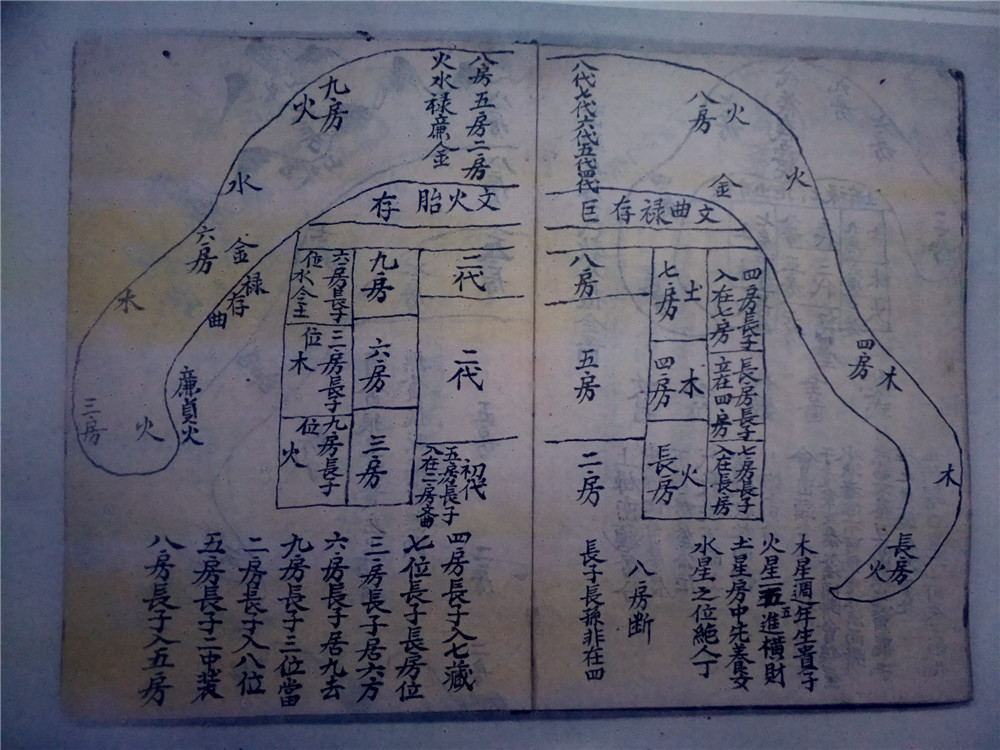 火
八房
八代七代六代五代四代
火
金
文曲禄存巨
四房
木
木
長房
火
四房長子
入在七房
長房長子
立在四房
七房長子
入在長房
土
七房
木
四房
火
長房
八房
五房
二房
木星週年生貴子
火星五五進橫財
土星房中先養女
水星之位絕人丁
八房断
長子長孫非在四
八房五房二房
火水禄廉金
九房
火
水
六房
木
三房
火
文火胎存
金
禄存
曲
廉貞火
二代
二代
初代
五房長子
九房
六房
三房
六房長子
位水金土
三房長子
位木
九房長子
位火
四房長子入七藏
七位長子長房位
三房長子居六方
六房長子居九去
九房長子三位當
二房長子入八位
五房長子二中装
八房長子入五房